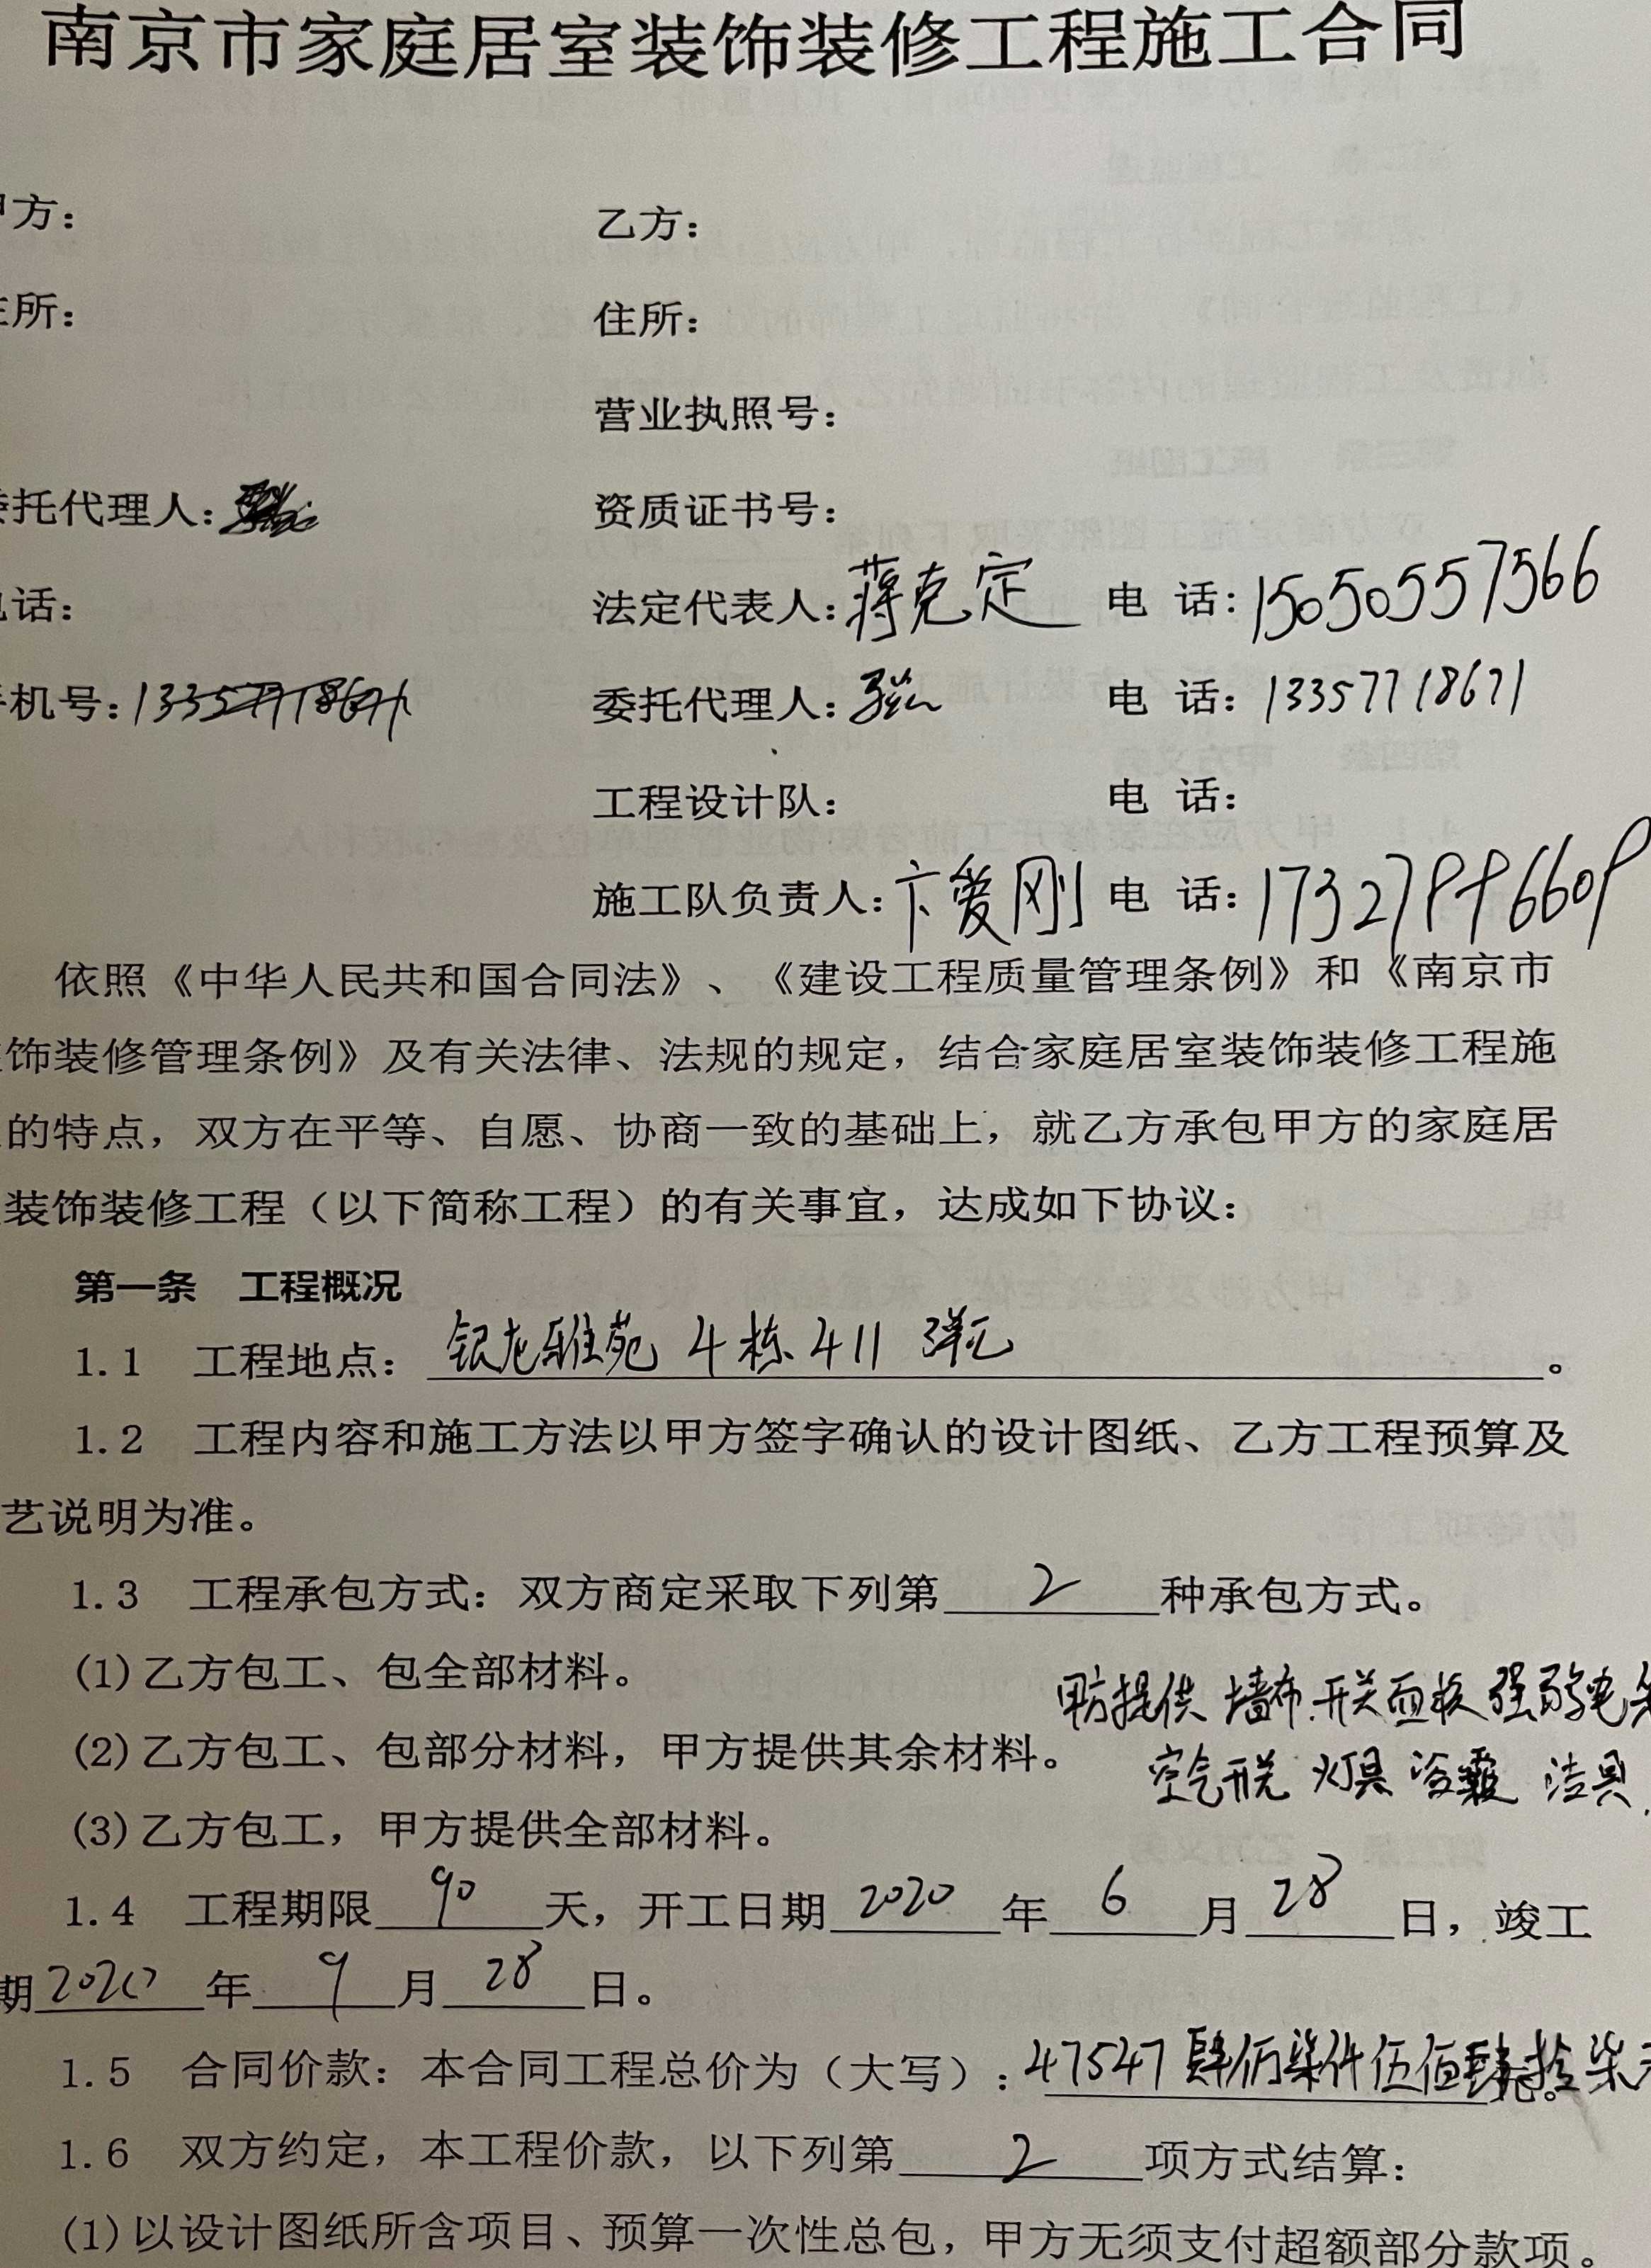 南京市家庭居室装饰装修工程施工合同
甲方： 乙方：
住所： 住所：
营业执照号：
委托代理人： 资质证书号：
电话： 法定代表人：蒋克定 电 话：15050557566
手机号：13357718671 委托代理人： 电 话：13357718671
工程设计队： 电 话：
施工队负责人：卞爱刚 电 话：
依照《中华人民共和国合同法》、《建设工程质量管理条例》和《南京市
饰装修管理条例》及有关法律、法规的规定，结合家庭居室装饰装修工程施
的特点，双方在平等、自愿、协商一致的基础上，就乙方承包甲方的家庭居
装饰装修工程（以下简称工程）的有关事宜，达成如下协议：
第一条 工程概况
1.1 工程地点：银龙雅苑 4栋411 。
1.2 工程内容和施工方法以甲方签字确认的设计图纸、乙方工程预算及
艺说明为准。
1.3 工程承包方式：双方商定采取下列第2种承包方式。
(1)乙方包工、包全部材料。
甲方提供 墙布.开关面板 强弱电
(2)乙方包工、包部分材料，甲方提供其余材料。
空气开关 灯具 浴霸 洁具.
(3)乙方包工，甲方提供全部材料。
1.4 工程期限90天，开工日期2020年6月28日，竣工
期2020年9月28日。
1.5 合同价款：本合同工程总价为（大写）：47547 肆仟柒佰伍佰肆拾柒元。
1.6 双方约定，本工程价款，以下列第2项方式结算：
(1)以设计图纸所含项目、预算一次性总包，甲方无须支付超额部分款项。